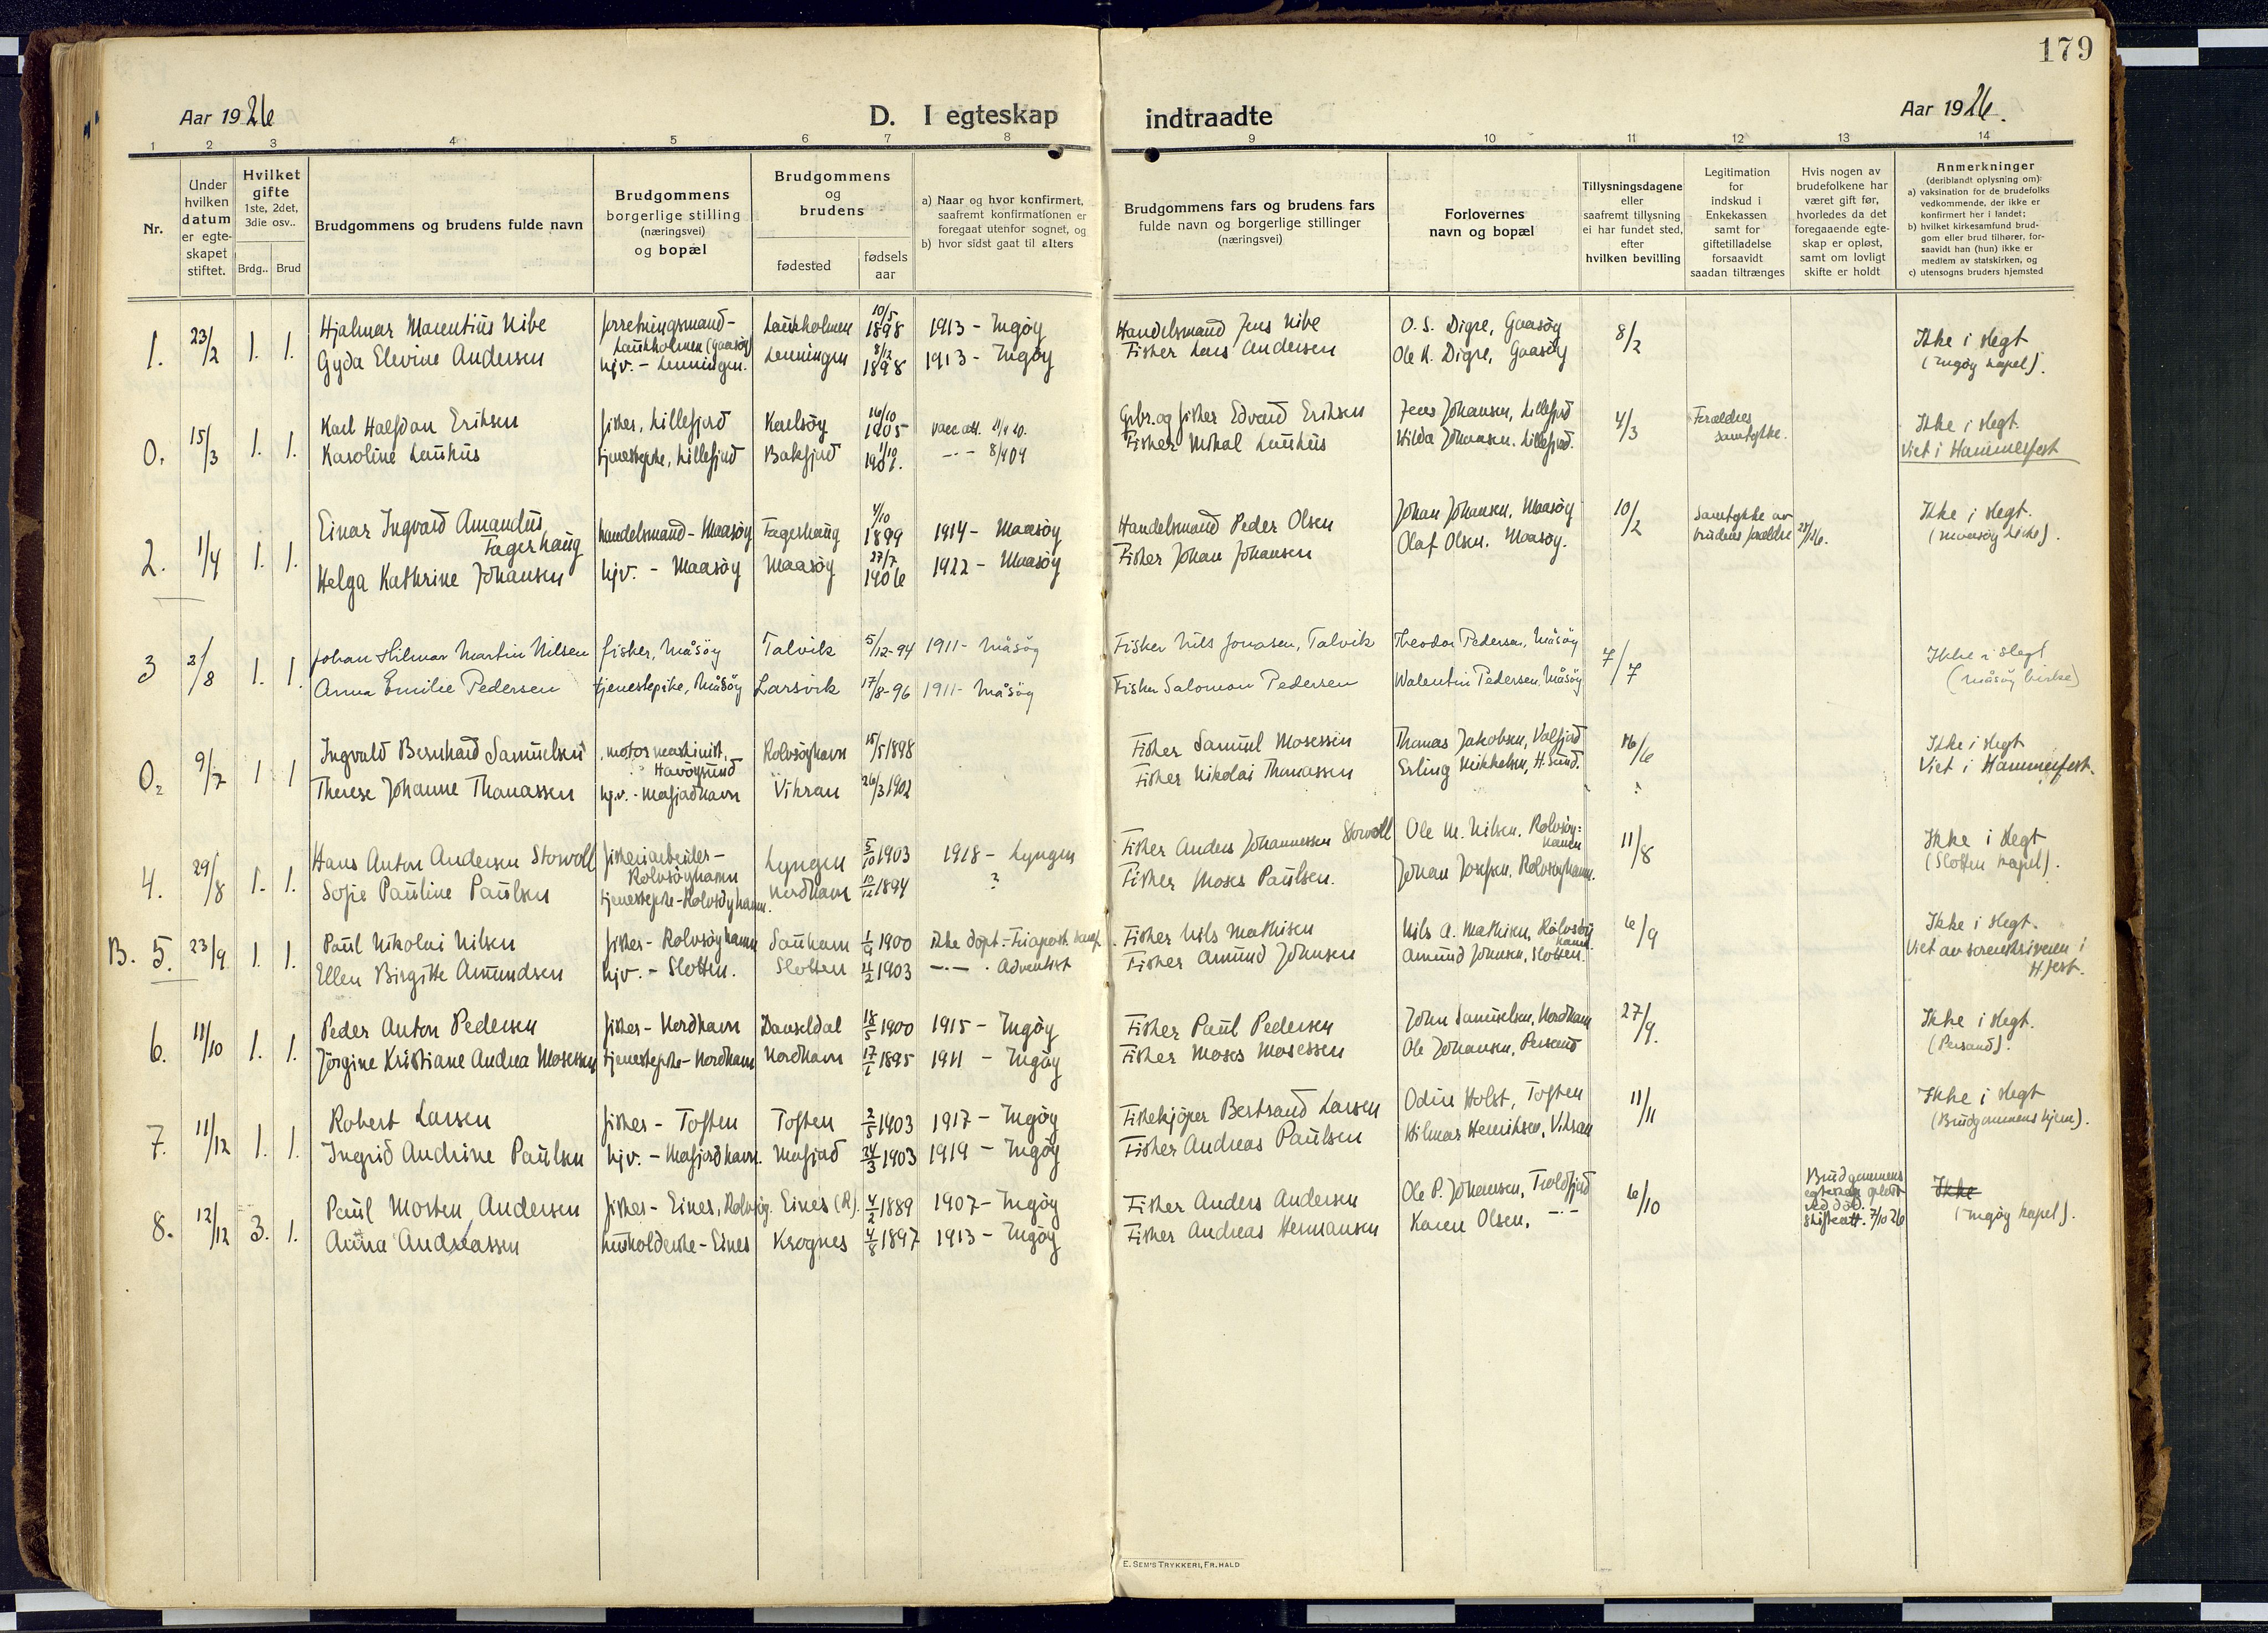 179
Aar 1926
D. I egteskap indtraadte
Aar 1926.
1 2 3 4 5 6 7 8 9 10 11 12 13 14
Nr.
Under hvilken datum er egteskapet stiftet.
Hvilket gifte
1ste, 2det, 3die osv..
Brdg.. Brud
Brudgommens og brudens fulde navn
Brudgommens borgerlige stilling (næringsvei) og bopæl
Brudgommens og brudens
fødested
fødsels aar
a) Naar og hvor konfirmert, saafremt konfirmationen er foregaat utenfor sognet, og
b) hvor sidst gaat til alters
Brudgommens fars og brudens fars fulde navn og borgerlige stillinger (næringsvei)
Forlovernes navn og bopæl
Tillysningsdagene eller saafremt tillysning ei har fundet sted, efter hvilken bevilling
Legitimation for indskud i Enkekassen samt for giftetilladelse forsaavidt saadan tiltrænges
Hvis nogen av brudefolkene har været gift før, hvorledes da det foregaaende egteskap er opløst, samt om lovligt skifte er holdt
Anmerkninger
(deriblandt oplysning om):
a) vaksination for de brudefolks vedkommende, der ikke er konfirmert her i landet;
b) hvilket kirkesamfund brudgom eller brud tilhører, forsaavidt han (hun) ikke er medlem av statskirken, og
c) utensogns bruders hjemsted
1. 23/2 1. 1. Hjalmar Marentius Nibe forretningsmand - Laukholmen (Gaasøy) Laukholmen 10/5 1898 1913 - Ingøy Handelsmand Jens Nibe O. S. Digre, Gaasøy 8/2 Ikke i slegt
Gyda Elevine Andersen hjv. - Lenningen. Lenningen 8/12 1898 1913 - Ingøy Fisker Lars Andersen Ole K. Digre, Gaasøy (Ingøy kapel).
0. 15/3 1. 1. Karl Halfdan Eriksen fisker, Lillefjord Karlsøy 16/10 1905 vacc.att. Gbr. og fisker Edvard Eriksen Jens Johansen, Lillefjord 4/3 Forældres samtykke. Ikke i slegt.
Karoline Lauhus tjenestepike, Lillefjord Baksfjord - " - 8/9 09 Fisker Mikal Lauhus Hilda Johansen. Lillefjord. Viet i Hammerfest
2. 1/4 1. 1. Einar Ingvard Amandus Fagerhaug handelsmand - Maasøy Fagerhaug 4/10 1899 1914 - Maasøy Handelsmand Peder Olsen Johan Johansen, Maasøy 10/2 Samtykke av brudens forældre Ikke i slegt.
Helga Kathrine Johansen hjv. - Maasøy Maasøy 27/7 1906 1922 - Maasøy Fisker Johan Johansen Olaf Olsen. Maasøy. (Maasøy kirke).
3 2/8 1. 1. Johan Hilmar Martin Nilsen fisker, Måsöy Talvik 5/12-94 1911 - Måsöy Fisker Nils Jonasen, Talvik Theodor Pedersen, Måsöy 7/7 Ikke i slegt
Anna Emilie Pedersen tjenestepike, Måsöy Larsvik 17/8-96 1911 - Måsöy Fisker Salomon Pedersen Walentin Pedersen, Måsöy (Måsöy kirke)
0. 9/7 1 1 Ingvald Bernhard Samuelsen motormaskinist, Havøysund Rolvsøyhavn 15/5 1898 Fisker Samuel Mosessen Thomas Jakobsen, Valfjord 16/6 Ikke i slegt
Therese Johanne Thomassen hj.v. - Mafjordhavn Vikran 26/3 1902 Fisker Nikolai Thomassen Erling Mikkelsen, H.sund. ? Viet i Hammerfest.
4. 29/8 1. 1. Hans Anton Andersen Storvoll fiskeriarbeider - Rolvsøyhavn Lyngen 5/10 1903 1918 - Lyngen Fisker Anders Johannessen Storvoll Ole M. Nilsen. Rolvsøyhavn 11/8 Ikke i slegt
Sofie Pauline Paulsen tjenestepike - Rolvsøyhavn. Nordhavn 10/12 1894 ? Fisker Moses Paulsen. Johan Josefsen, Rolvsøyhavn. (Slotten kapel).
B. 5. 23/9 1. 1. Paul Nikolai Nilsen fisker - Rolvsøyhavn Sauhavn 1/9 1900 ikke døpt - Fisker Nils Mathisen Nils A. Mathisen, Rolvsøyhavn 6/9 Ikke i slegt.
Ellen Birgitte Amundsen hjv. - Slotten. Slotten 1903 - " - . Adventist Fisker Amund Johnsen Amund Johnsen, Slotten. Viet av sorenskriveren i H.fest.
6. 11/10 1. 1. Peder Anton Pedersen fisker - Nordhavn Danseldal 18/5 1900 1915 - Ingøy Fisker Paul Pedersen John Samuelsen, Nordhavn 27/9. Ikke i slegt.
Jørgine Kristiane Andrea Mosessen tjenestepike - Nordhavn Nordhavn 17/1 1895 1911 - Ingøy Fisker Moses Mosessen Ole Johansen, Persand (Persand).
7. 11/12 1. 1. Robert Larsen fisker - Toften Toften 2/5 1903 1917 - Ingøy Fiskekjøper Bertrand Larsen Odin Holst, Toften 11/11 Ikke i slegt
Ingrid Andrine Paulsen hjv. - Mafjordhavn. Mafjord 24/3 1903 1919 - Ingøy Fisker Andreas Paulsen Hilmar Henriksen, Vikran (Brudgommens hjem).
8. 12/12 3. 1. Paul Morten Andersen fisker - Eines, Rolvsøy. Eines (R). 4/2 1889 1907 - Ingøy Fisker Anders Andersen Ole P. Johansen, Troldfjord 6/10 Brudgommens egteskap opløst ved død. Skifteatt. 7/10 26 Ikke
Anna Andreassen husholderske - Eines Krognes 4/8 1897 1913 - Ingøy Fisker Andreas Hermansen Karen Olsen, - " - (Ingøy kapel).
E. SEM'S TRYKKERI, FR.HALD